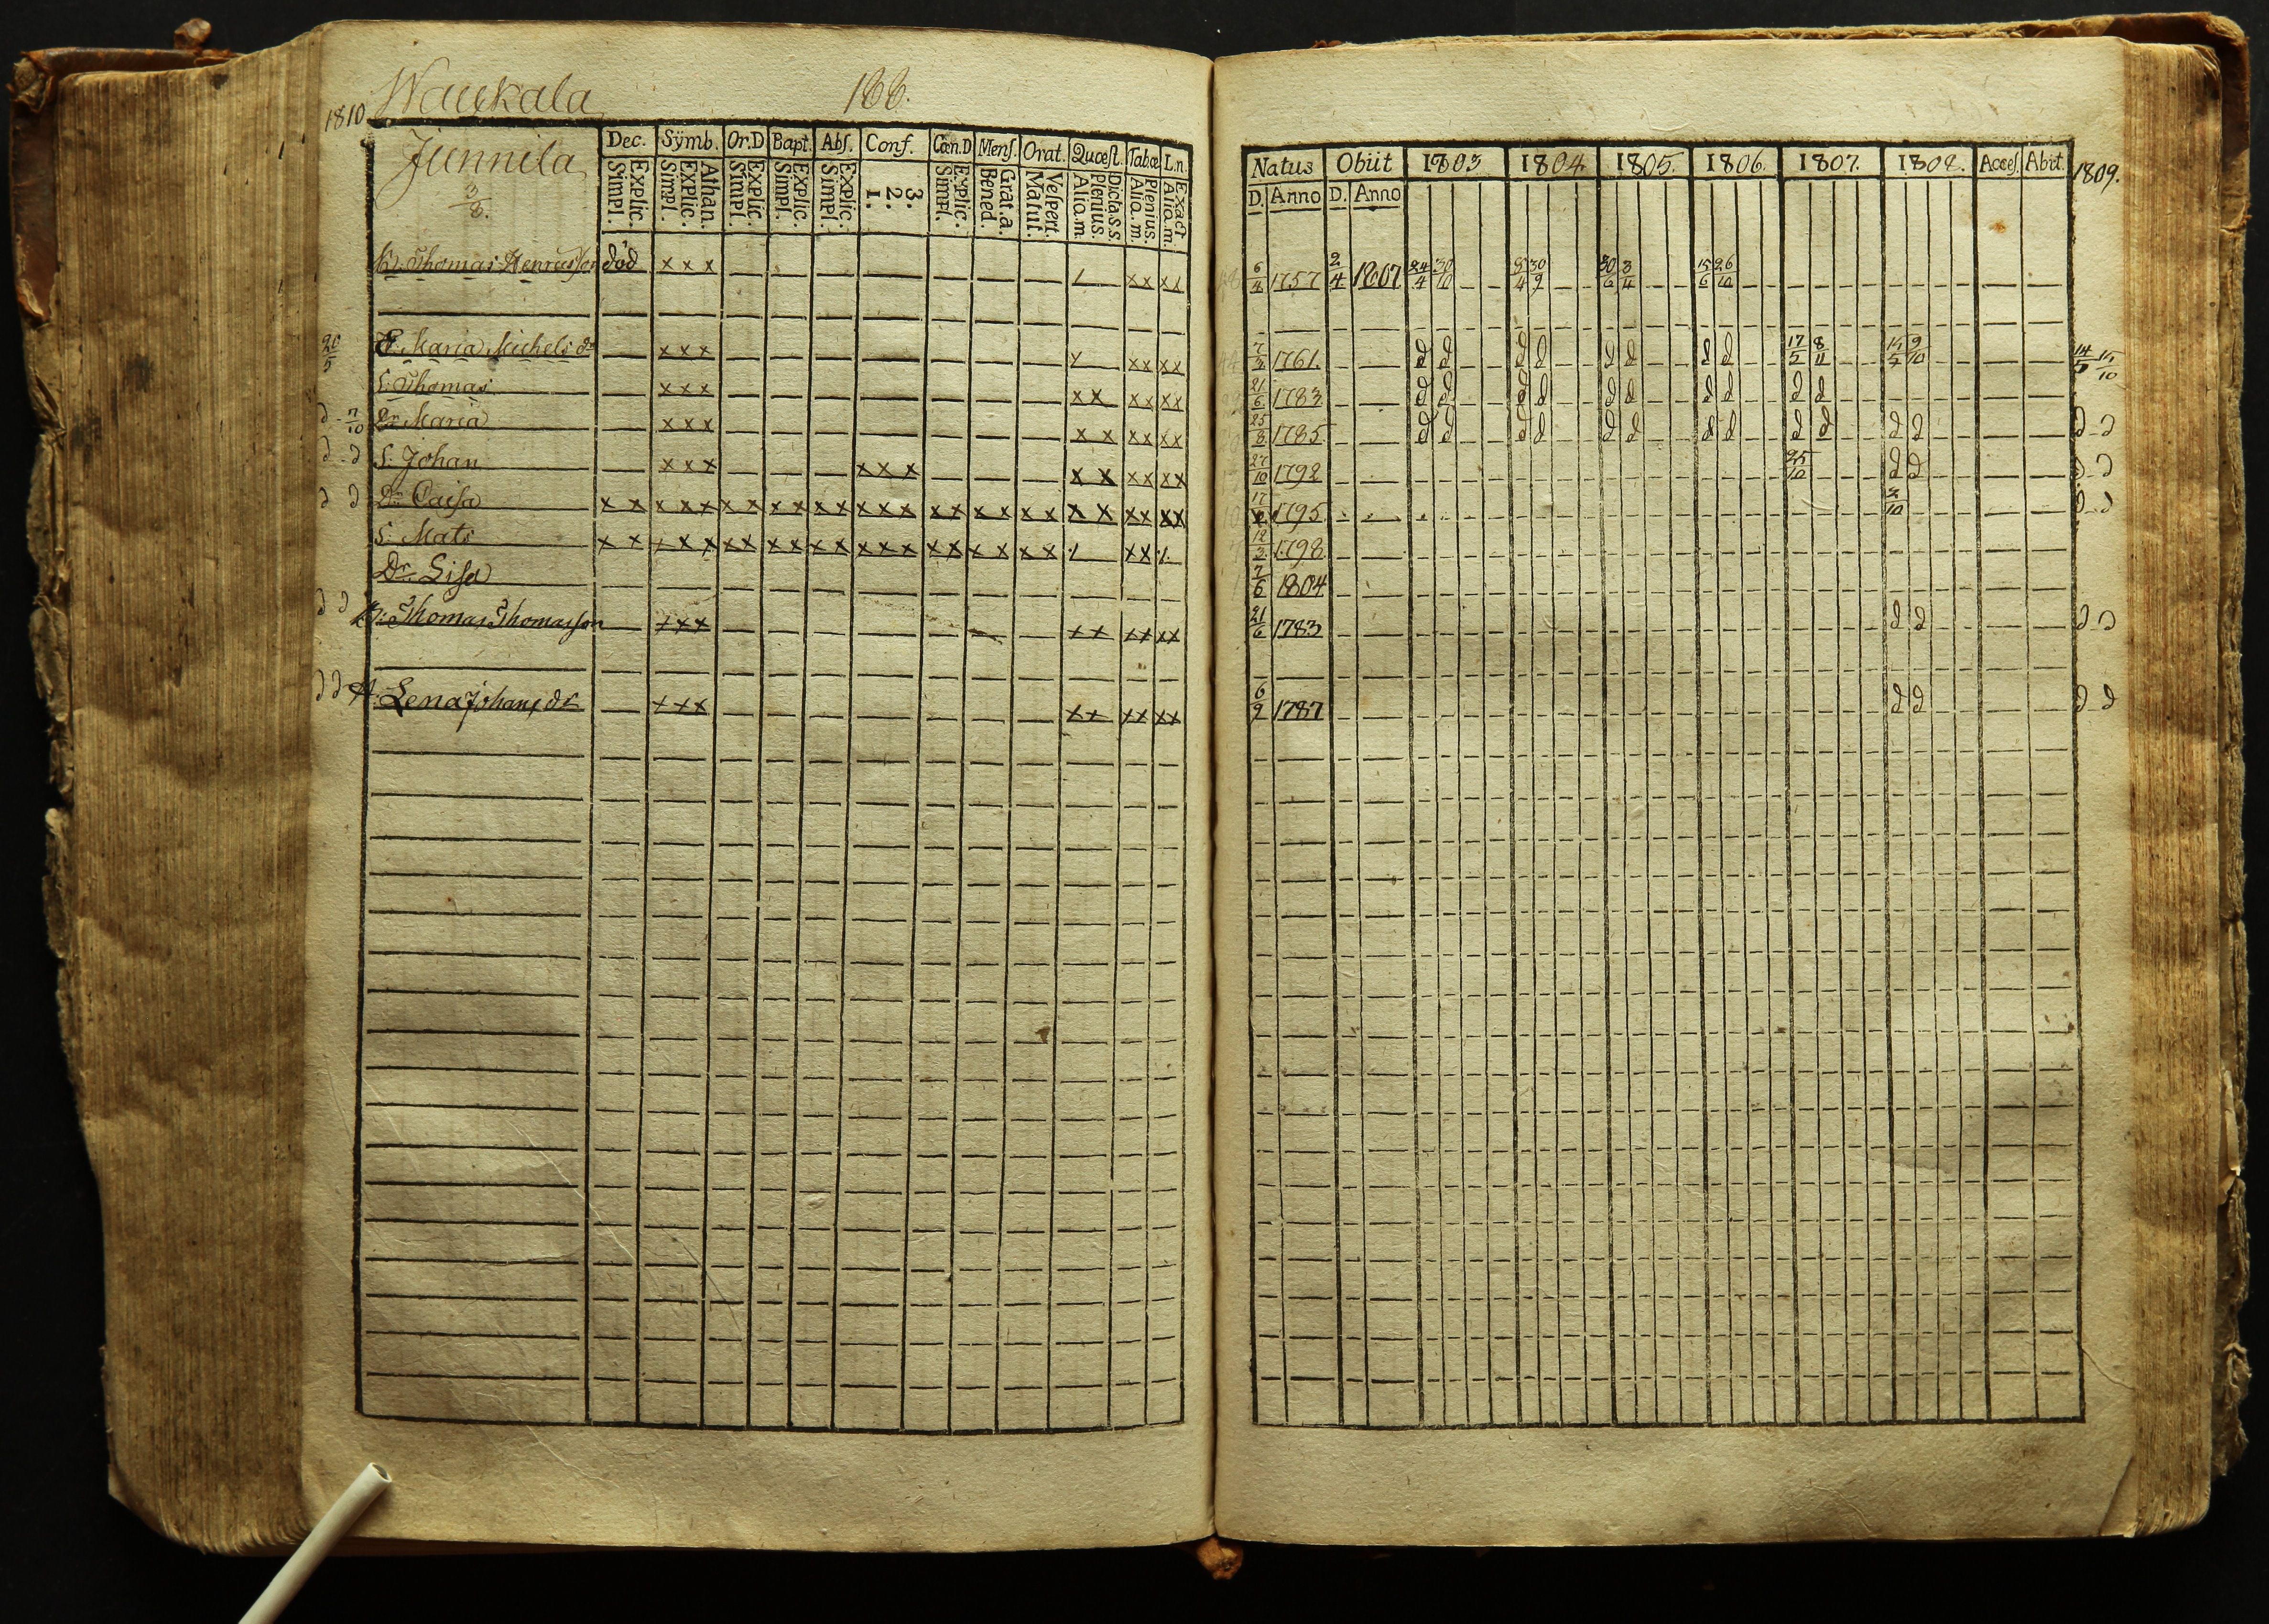 1810 Waukala 166.
Junnila
3/8.
Dec. Sÿmb. Or.D Bapt. Abſ. Conf. Cœn.D Menſ. Orat. Quœſt. Tabœ L.n.
Explic. Simpl. Athan. Explic. Simpl. Explic. Simpl. Explic. Simpl. Explic. Simpl. 3. 2. 1. Explic. Simpl. Grat.a. Bened. Veſpert. Matut. Dicta.s.s. Plenius. Alio.m. Plenius. Alio.m. Exact Alio.m.
Thomas Henricsson död x x x x x x x
20/5 E. Maria Michels dr x x x x x x x
S: Thomas x x x x x x x x x
d - 7/10 Dr Maria x x x x x x x x x
d - d S: Johan x x x x x x x x x x x x
d d Dr Caisa x x x x x x x x x x x x x x x x x x x x x x x x x x
S: Mats x x x x x x x x x x x x x x x x x x x x x x
Dr. Lisa
d d B: Thomas Thomasson x x x x x x x x x
d d H. Lena Johans dr x x x x x x x x x
Natus Obiit 1803 1804 1805. 1806. 1807. 1808. Acceſ. Abit. 1809.
D. Anno D. Anno
6/4 1757 2/4 1807 24/4 30/10 8/4 30/9 30/6 3/11 15/6 26/10
1761. d d d d d d d d 17/5 8/11 9/10 14/5
21/6 1783 d d d d d d d d d d
25/8 1785 d d d d d d d d d d d d d - d
27/10 1792 25/10 d d d - d
1795 d - d
1798
7/6 1804
21/6 1783 d d d - d
6/9 1787 d d d - d